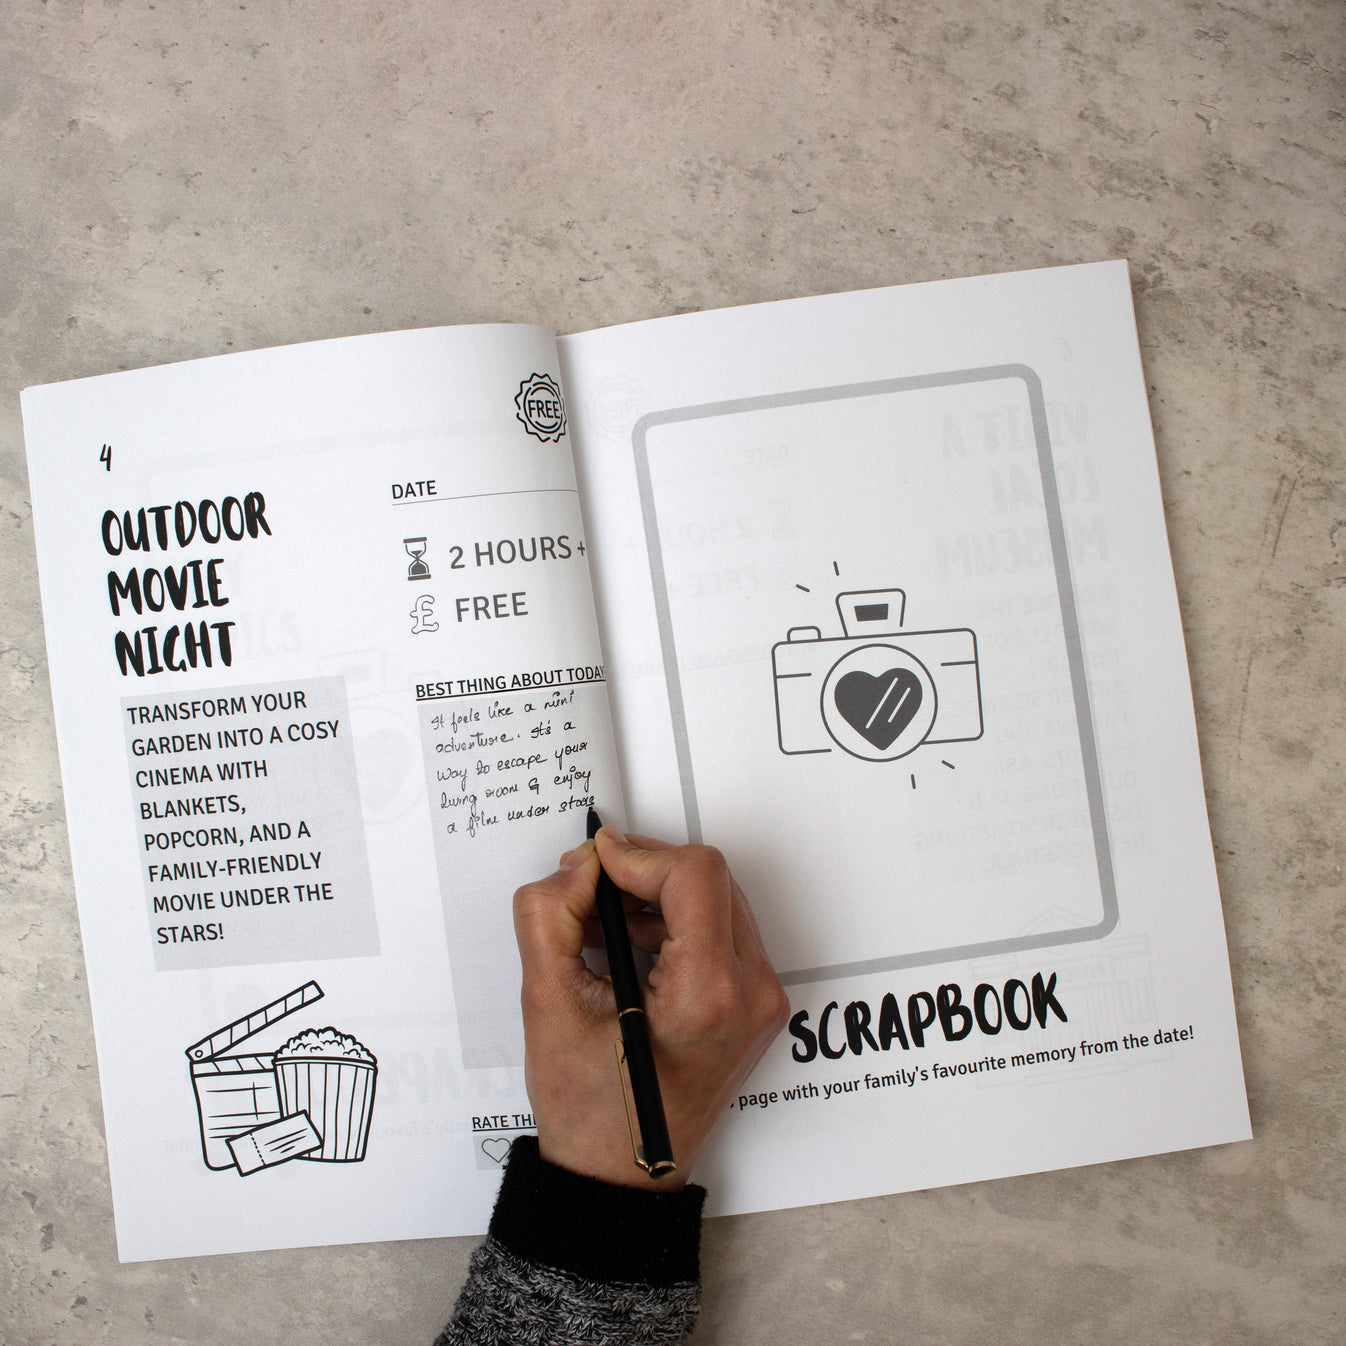 4
OUTDOOR
MOVIE
NIGHT
TRANSFORM YOUR
GARDEN INTO A COSY
CINEMA WITH
BLANKETS,
POPCORN, AND A
FAMILY-FRIENDLY
MOVIE UNDER THE
STARS!
FREE
DATE
2 HOURS +
£ FREE
BEST THING ABOUT TODAY
It feels like a mini
adventure. It's a
way to escape your
living room & enjoy
a film under stars
RATE THI
SCRAPBOOK
page with your family's favourite memory from the date!